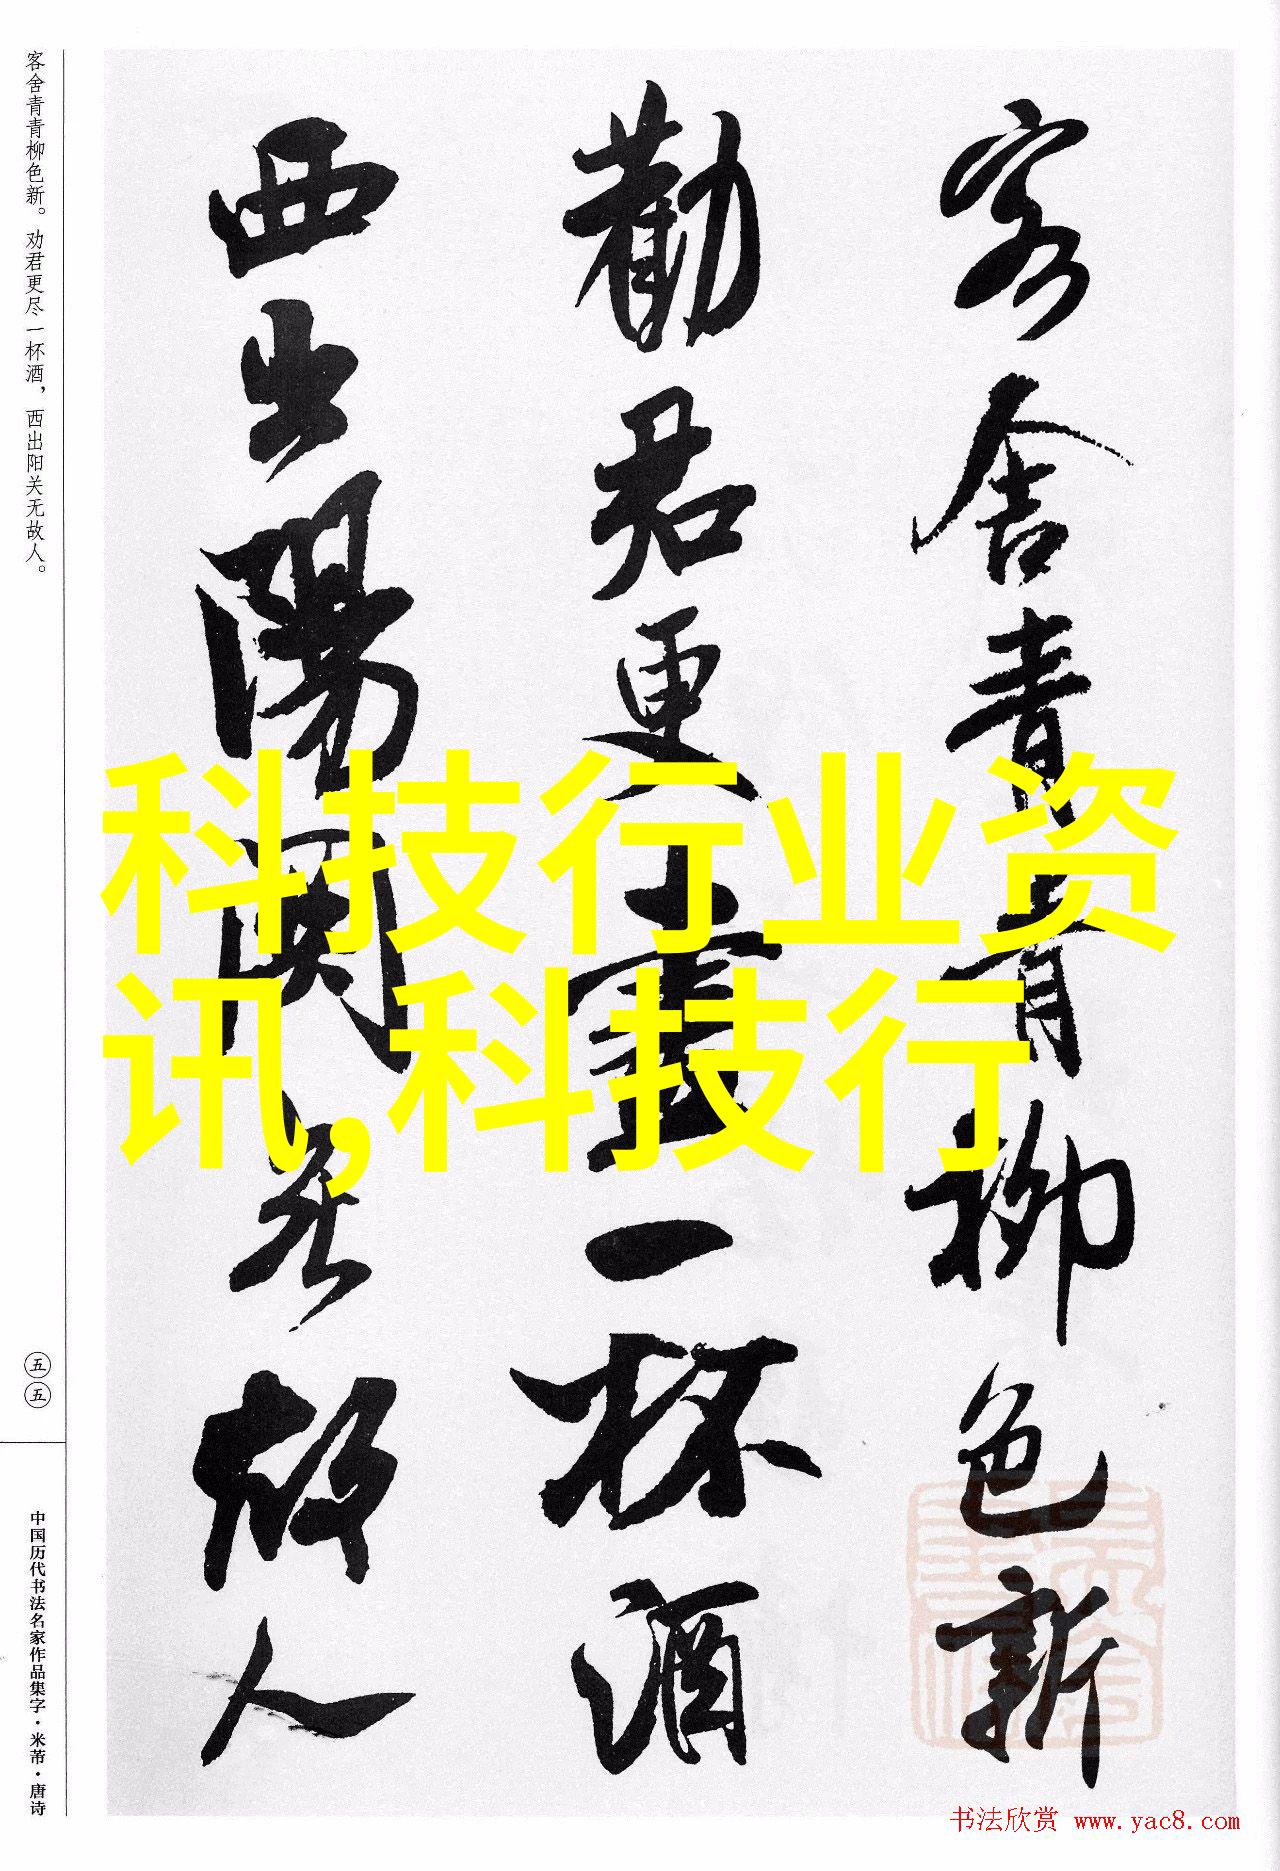 客舍青青柳色新
勸君更盡一杯酒
西出陽關無故人
科技行业资
讯,科技行
客舍青青柳色新。劝君更尽一杯酒，西出阳关无故人。
五五
中国历代书法名家作品集字·米芾·唐诗
书法欣赏 www.yac8.com